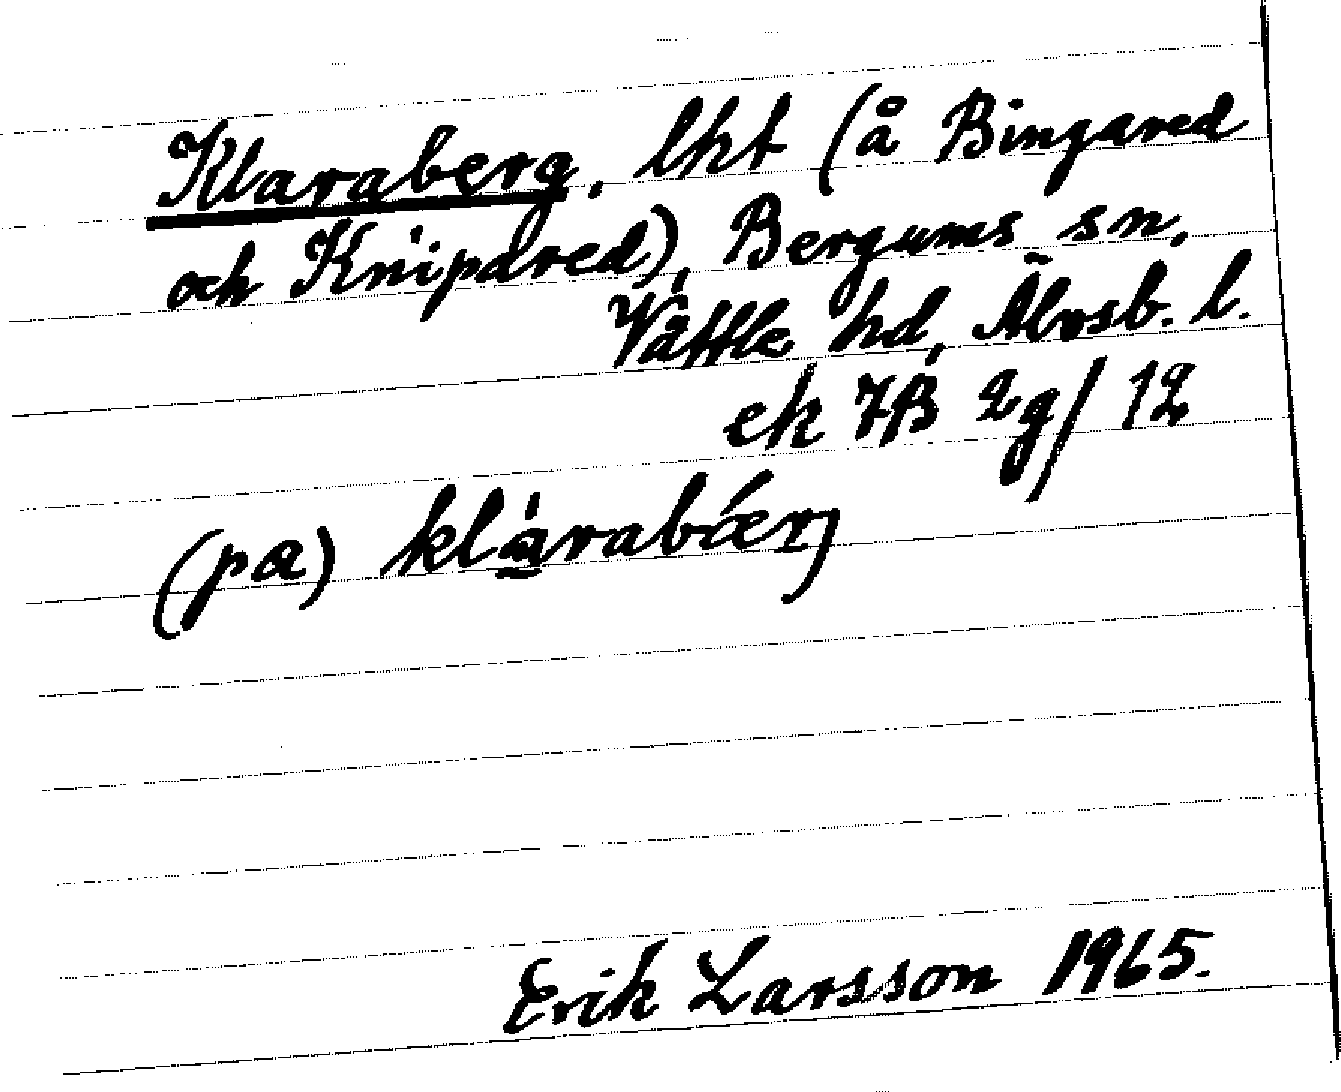 Klaraberg, lht (å Bingared
och Knipared), Bergums sn,
Vättle hd, Älvsb. l.
ek 7B 2g/12
(pa) klàrabǽrj
Erik Larsson 1965.